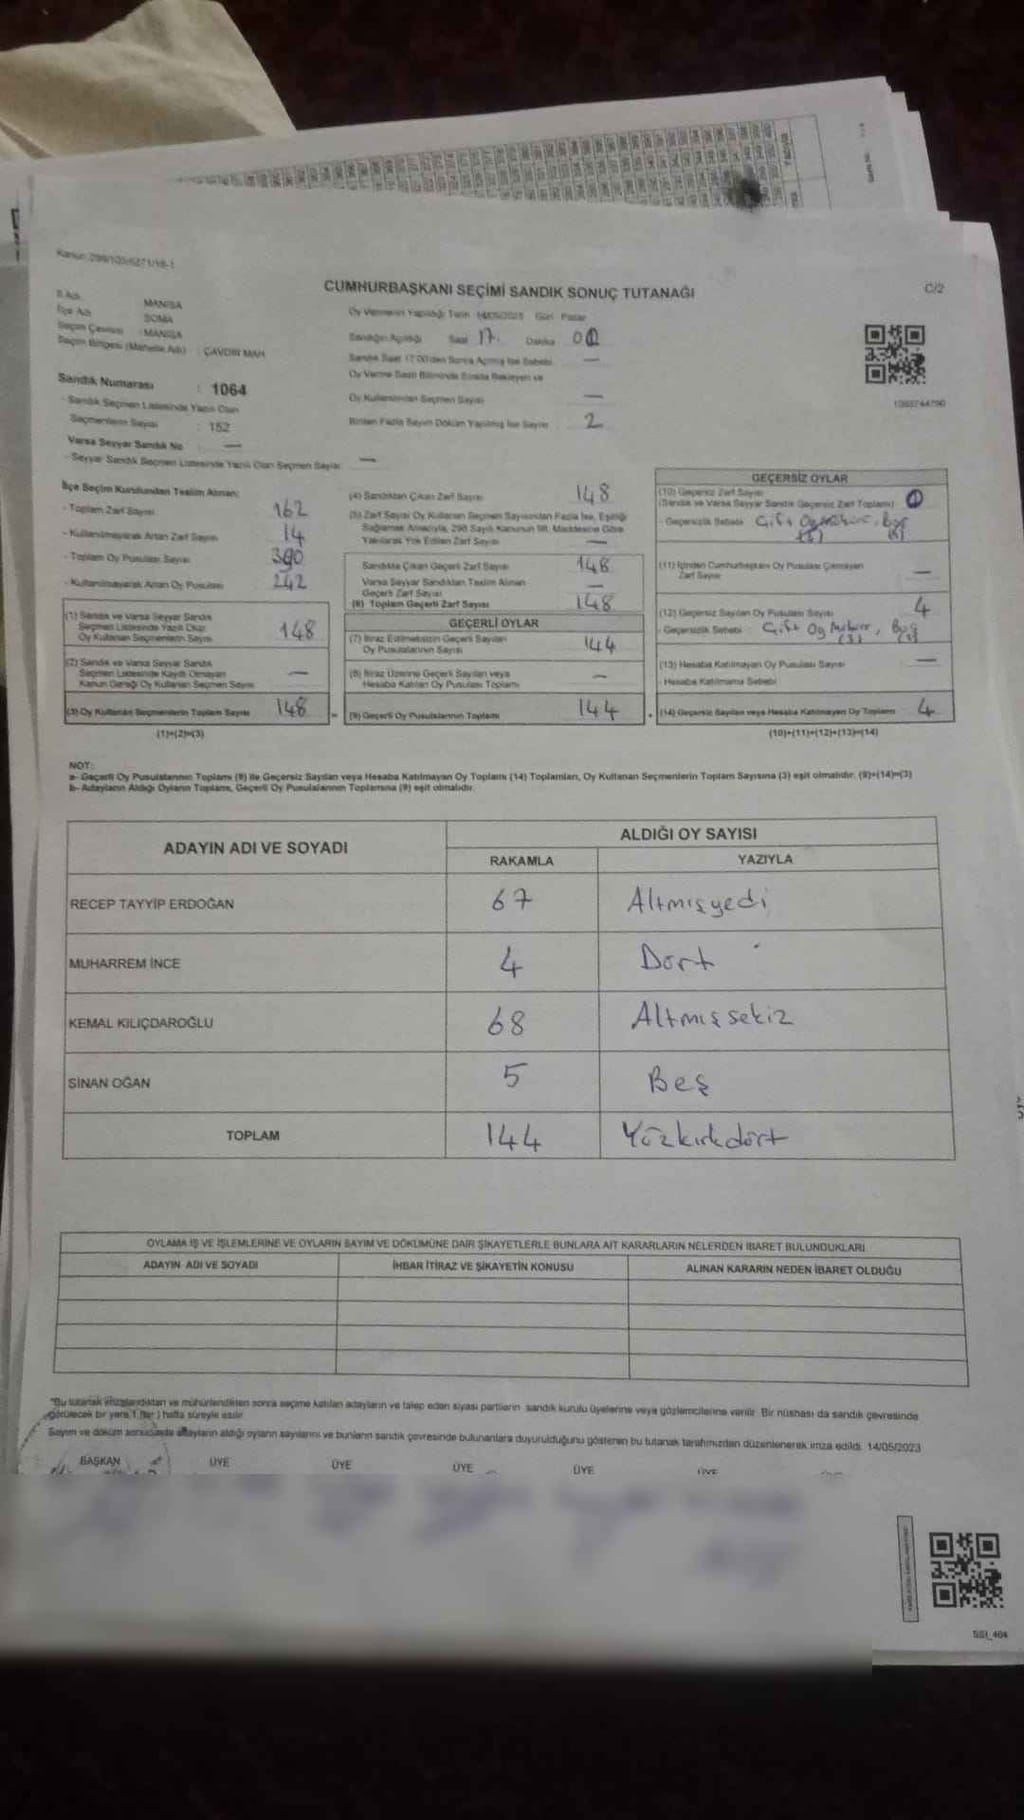 Kanun: 298/103,6271/18-1
CUMHURBAŞKANI SEÇİMİ SANDIK SONUÇ TUTANAĞI
C/2
İl Adı : MANİSA
İlçe Adı : SOMA
Seçim Çevresi : MANİSA
Seçim Bölgesi (Mahalle Adı) : ÇAVDIR MAH
Sandık Numarası : 1064
- Sandık Seçmen Listesinde Yazılı Olan
Seçmenlerin Sayısı : 152
Varsa Seyyar Sandık No —
- Seyyar Sandık Seçmen Listesinde Yazılı Olan Seçmen Sayısı —
Oy Vermenin Yapıldığı Tarih 14/05/2023 Gün Pazar
Sandığın Açıldığı Saat 17 Dakika
Sandık Saat 17:00'den Sonra Açılmış İse Sebebi —
Oy Verme Saati Bitiminde Sırada Bekleyen ve
Oy Kullanılan Seçmen Sayısı —
Birden Fazla Sayım Döküm Yapılmış İse Sayısı 2
İlçe Seçim Kurulundan Teslim Alınan:
- Toplam Zarf Sayısı 162
- Kullanılmayarak Artan Zarf Sayısı 14
- Toplam Oy Pusulası Sayısı
- Kullanılmayarak Artan Oy Pusulası 242
(1) Sandık ve Varsa Seyyar Sandık
Seçmen Listesinde Yazılı Olup
Oy Kullanan Seçmenlerin Sayısı 148
(2) Sandık ve Varsa Seyyar Sandık
Seçmen Listesinde Kayıtlı Olmayan
Kanun Gereği Oy Kullanan Seçmen Sayısı —
(3) Oy Kullanan Seçmenlerin Toplam Sayısı 148
(1)+(2)=(3)
(4) Sandıktan Çıkan Zarf Sayısı 148
(5) Zarf Sayısı Oy Kullanan Seçmen Sayısından Fazla İse, Eşitliği
Sağlamak Amacıyla, 298 Sayılı Kanunun 98. Maddesine Göre
Yakılarak Yok Edilen Zarf Sayısı —
Sandıkta Çıkan Geçerli Zarf Sayısı 148
Varsa Seyyar Sandıktan Teslim Alınan
Geçerli Zarf Sayısı —
(6) Toplam Geçerli Zarf Sayısı 148
GEÇERLİ OYLAR
(7) İtiraz Edilmeksizin Geçerli Sayılan
Oy Pusulalarının Sayısı 144
(8) İtiraz Üzerine Geçerli Sayılan veya
Hesaba Katılan Oy Pusulası Toplamı —
(9) Geçerli Oy Pusulalarının Toplamı 144
GEÇERSİZ OYLAR
(10) Geçersiz Zarf Sayısı
(Sandık ve Varsa Seyyar Sandık Geçersiz Zarf Toplamı)
- Geçersizlik Sebebi
(11) İçinden Cumhurbaşkanı Oy Pusulası Çıkmayan
Zarf Sayısı —
(12) Geçersiz Sayılan Oy Pusulası Sayısı 4
- Geçersizlik Sebebi : Çift Oy Mühürü, Boş
(13) Hesaba Katılmayan Oy Pusulası Sayısı —
- Hesaba Katılmama Sebebi
(14) Geçersiz Sayılan veya Hesaba Katılmayan Oy Toplamı 4
(10)+(11)+(12)+(13)=(14)
NOT:
a- Geçerli Oy Pusulalarının Toplamı (9) ile Geçersiz Sayılan veya Hesaba Katılmayan Oy Toplamı (14) Toplamları, Oy Kullanan Seçmenlerin Toplam Sayısına (3) eşit olmalıdır. (9)+(14)=(3)
b- Adayların Aldığı Oyların Toplamı, Geçerli Oy Pusulalarının Toplamına (9) eşit olmalıdır.
ADAYIN ADI VE SOYADI
ALDIĞI OY SAYISI
RAKAMLA YAZIYLA
RECEP TAYYİP ERDOĞAN 67 Altmışyedi
MUHARREM İNCE 4 Dört
KEMAL KILIÇDAROĞLU 68 Altmışsekiz
SİNAN OĞAN 5 Beş
TOPLAM 144 Yüzkırkdört
OYLAMA İŞ VE İŞLEMLERİNE VE OYLARIN SAYIM VE DÖKÜMÜNE DAİR ŞİKAYETLERLE BUNLARA AİT KARARLARIN NELERDEN İBARET BULUNDUKLARI
ADAYIN ADI VE SOYADI İHBAR İTİRAZ VE ŞİKAYETİN KONUSU ALINAN KARARIN NEDEN İBARET OLDUĞU
*Bu tutanak imzalandıktan ve mühürlendikten sonra seçime katılan adayların ve talep eden siyasi partilerin sandık kurulu üyelerine veya gözlemcilerine verilir. Bir nüshası da sandık çevresinde
görülecek bir yere 1 (bir) hafta süreyle asılır.
Sayım ve döküm sonucunda adayların aldığı oyların sayılarını ve bunların sandık çevresinde bulunanlara duyurulduğunu gösteren bu tutanak tarafımızdan düzenlenerek imza edildi. 14/05/2023
BAŞKAN ÜYE ÜYE ÜYE ÜYE ÜYE
SSI_404